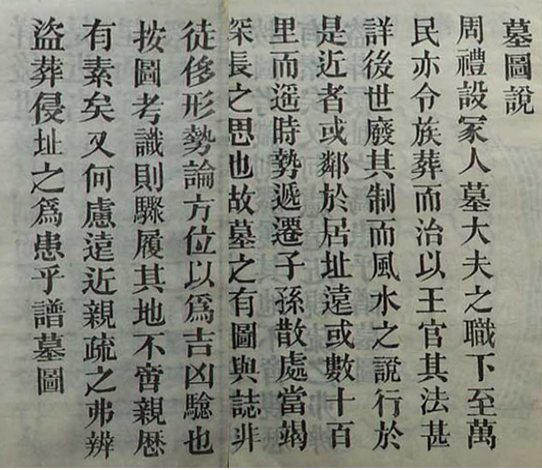 墓圖說
周禮設冢人墓大夫之職下至萬
民亦令族葬而治以王官其法甚
詳後世廢其制而風水之說行於
是近者或鄰於居址遠或數十百
里而遥時勢遞遷子孫散處當竭
深長之思也故墓之有圖與誌非
徒侈形勢論方位以爲吉凶驗也
按圖考識則驟履其地不啻親歷
有素矣又何慮遠近親疏之弗辨
盜葬侵址之爲患乎譜墓圖